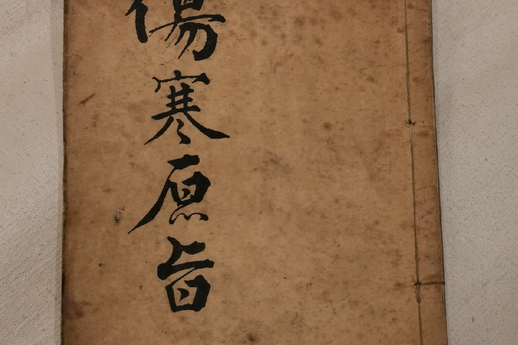 傷寒原旨